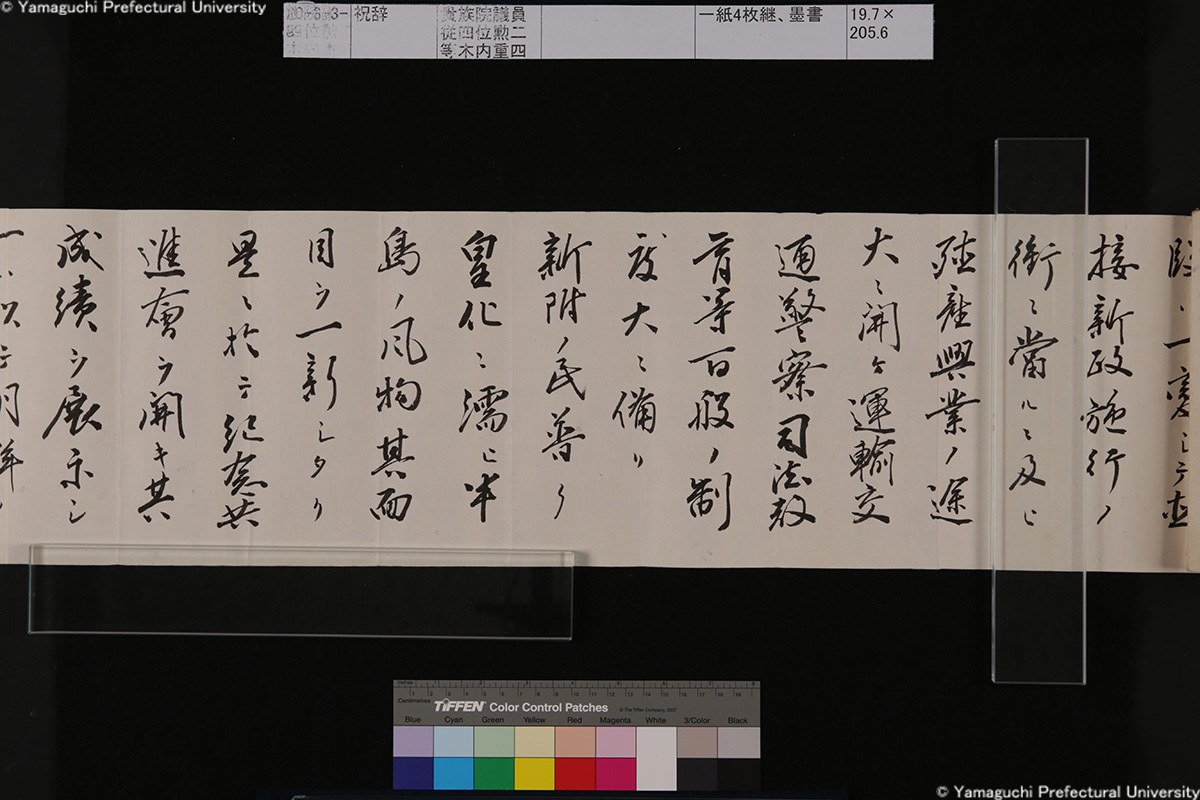 © Yamaguchi Prefectural University
祝辞
貴族院議員
従四位勲二
等木内重四
一紙4枚継、墨書
19.7×
205.6
一変シテ直
接新政施行ノ
衝ニ當ルニ及ヒ
殖産興業ノ途
大ニ開ケ運輸交
通警察司法教
育等百般ノ制
度大ニ備リ
新附ノ民普ク
皇化ニ濡ヒ半
島ノ風物其面
目ヲ一新シタリ
是ニ於テ紀念共
進會ヲ開キ其
成績ヲ展示シ
一ハ以テ
inches
Centimetres
TIFFEN Color Control Patches
© The Tiffen Company, 2007
Blue Cyan Green Yellow Red Magenta White 3/Color Black
© Yamaguchi Prefectural University